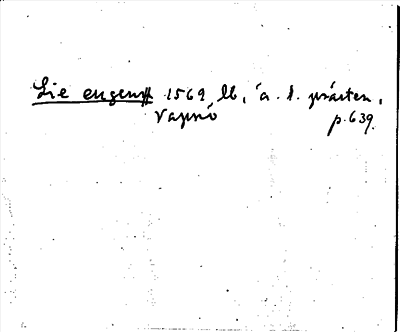 Lie eugens 1569 lb, á s. prästen,
Vapnö p. 639.